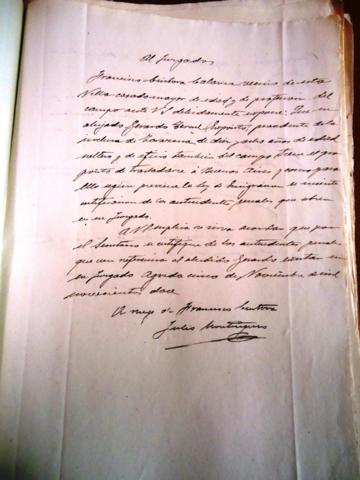 Al Juzgado
Francisco Cintora Calavia vecino de esta
Villa casado mayor de edad y de profesion del
campo ante V.S. debidamente expone: Que su
ahijado Gerardo Bernal Exposito, procedente de la
inclusa de Zaragoza de diez y ocho años de edad
soltero y de oficio tambien del campo tiene el pro
posito de trasladarse a Buenos Aires y como para
ello segun previene la ley de Emigracion es necesario
certificacion de los antecedentes penales que obren
en su Juzgado.
A V.S. suplica se sirva acordar que por
el Secretario se certifique de los antecedentes penales
que con referencia al aludido Gerardo existan en
su Juzgado Agreda cinco de Noviembre de mil
novecientos doce
A ruego de Francisco Cintora
Julio